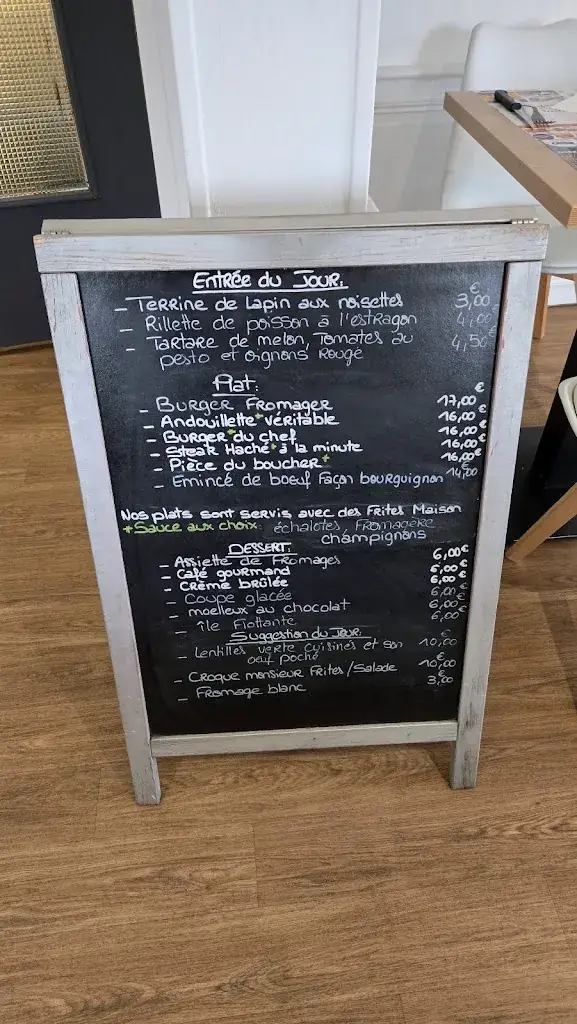 Entrée du Jour.
€
- Terrine de Lapin aux noisettes 3,00
- Rillette de poisson à l'estragon 4,00
- Tartare de melon, Tomates au 4,50€
pesto et oignons rouge
Plat:
€
- Burger Fromager 17,00
- Andouillette* véritable 16,00€
- Burger* du chef 16,00€
- Steak Haché* à la minute 16,00€
- Pièce du boucher* 16,00€
- Emincé de boeuf Façon bourguignon 14,00€
Nos plats sont servis avec des Frites Maison
*Sauce aux choix: échalotes, Fromagère
champignons
Dessert:
- Assiette de Fromages 6,00€
- Café gourmand 6,00€
- Crème brûlée 6,00€
- Coupe glacée 6,00€
- moelleux au chocolat 6,00€
- île Flottante 6,00€
Suggestion du Jour:
- Lentilles verte cuisinés et son 10,00€
oeuf poché
- Croque monsieur Frites/Salade 10,00€
- Fromage blanc 3,00€